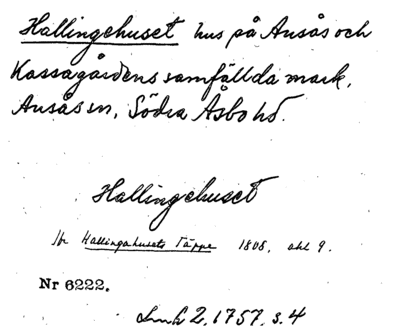 Hallingehuset hus på Ausås och
Kassagårdens samfällda mark,
Ausås sn, Södra Åsbo hd.
Hallingehuset
Jfr Hallingahusets Täppe 1808, akt 9.
Nr 6222.
Lmk 2, 1757, s. 4